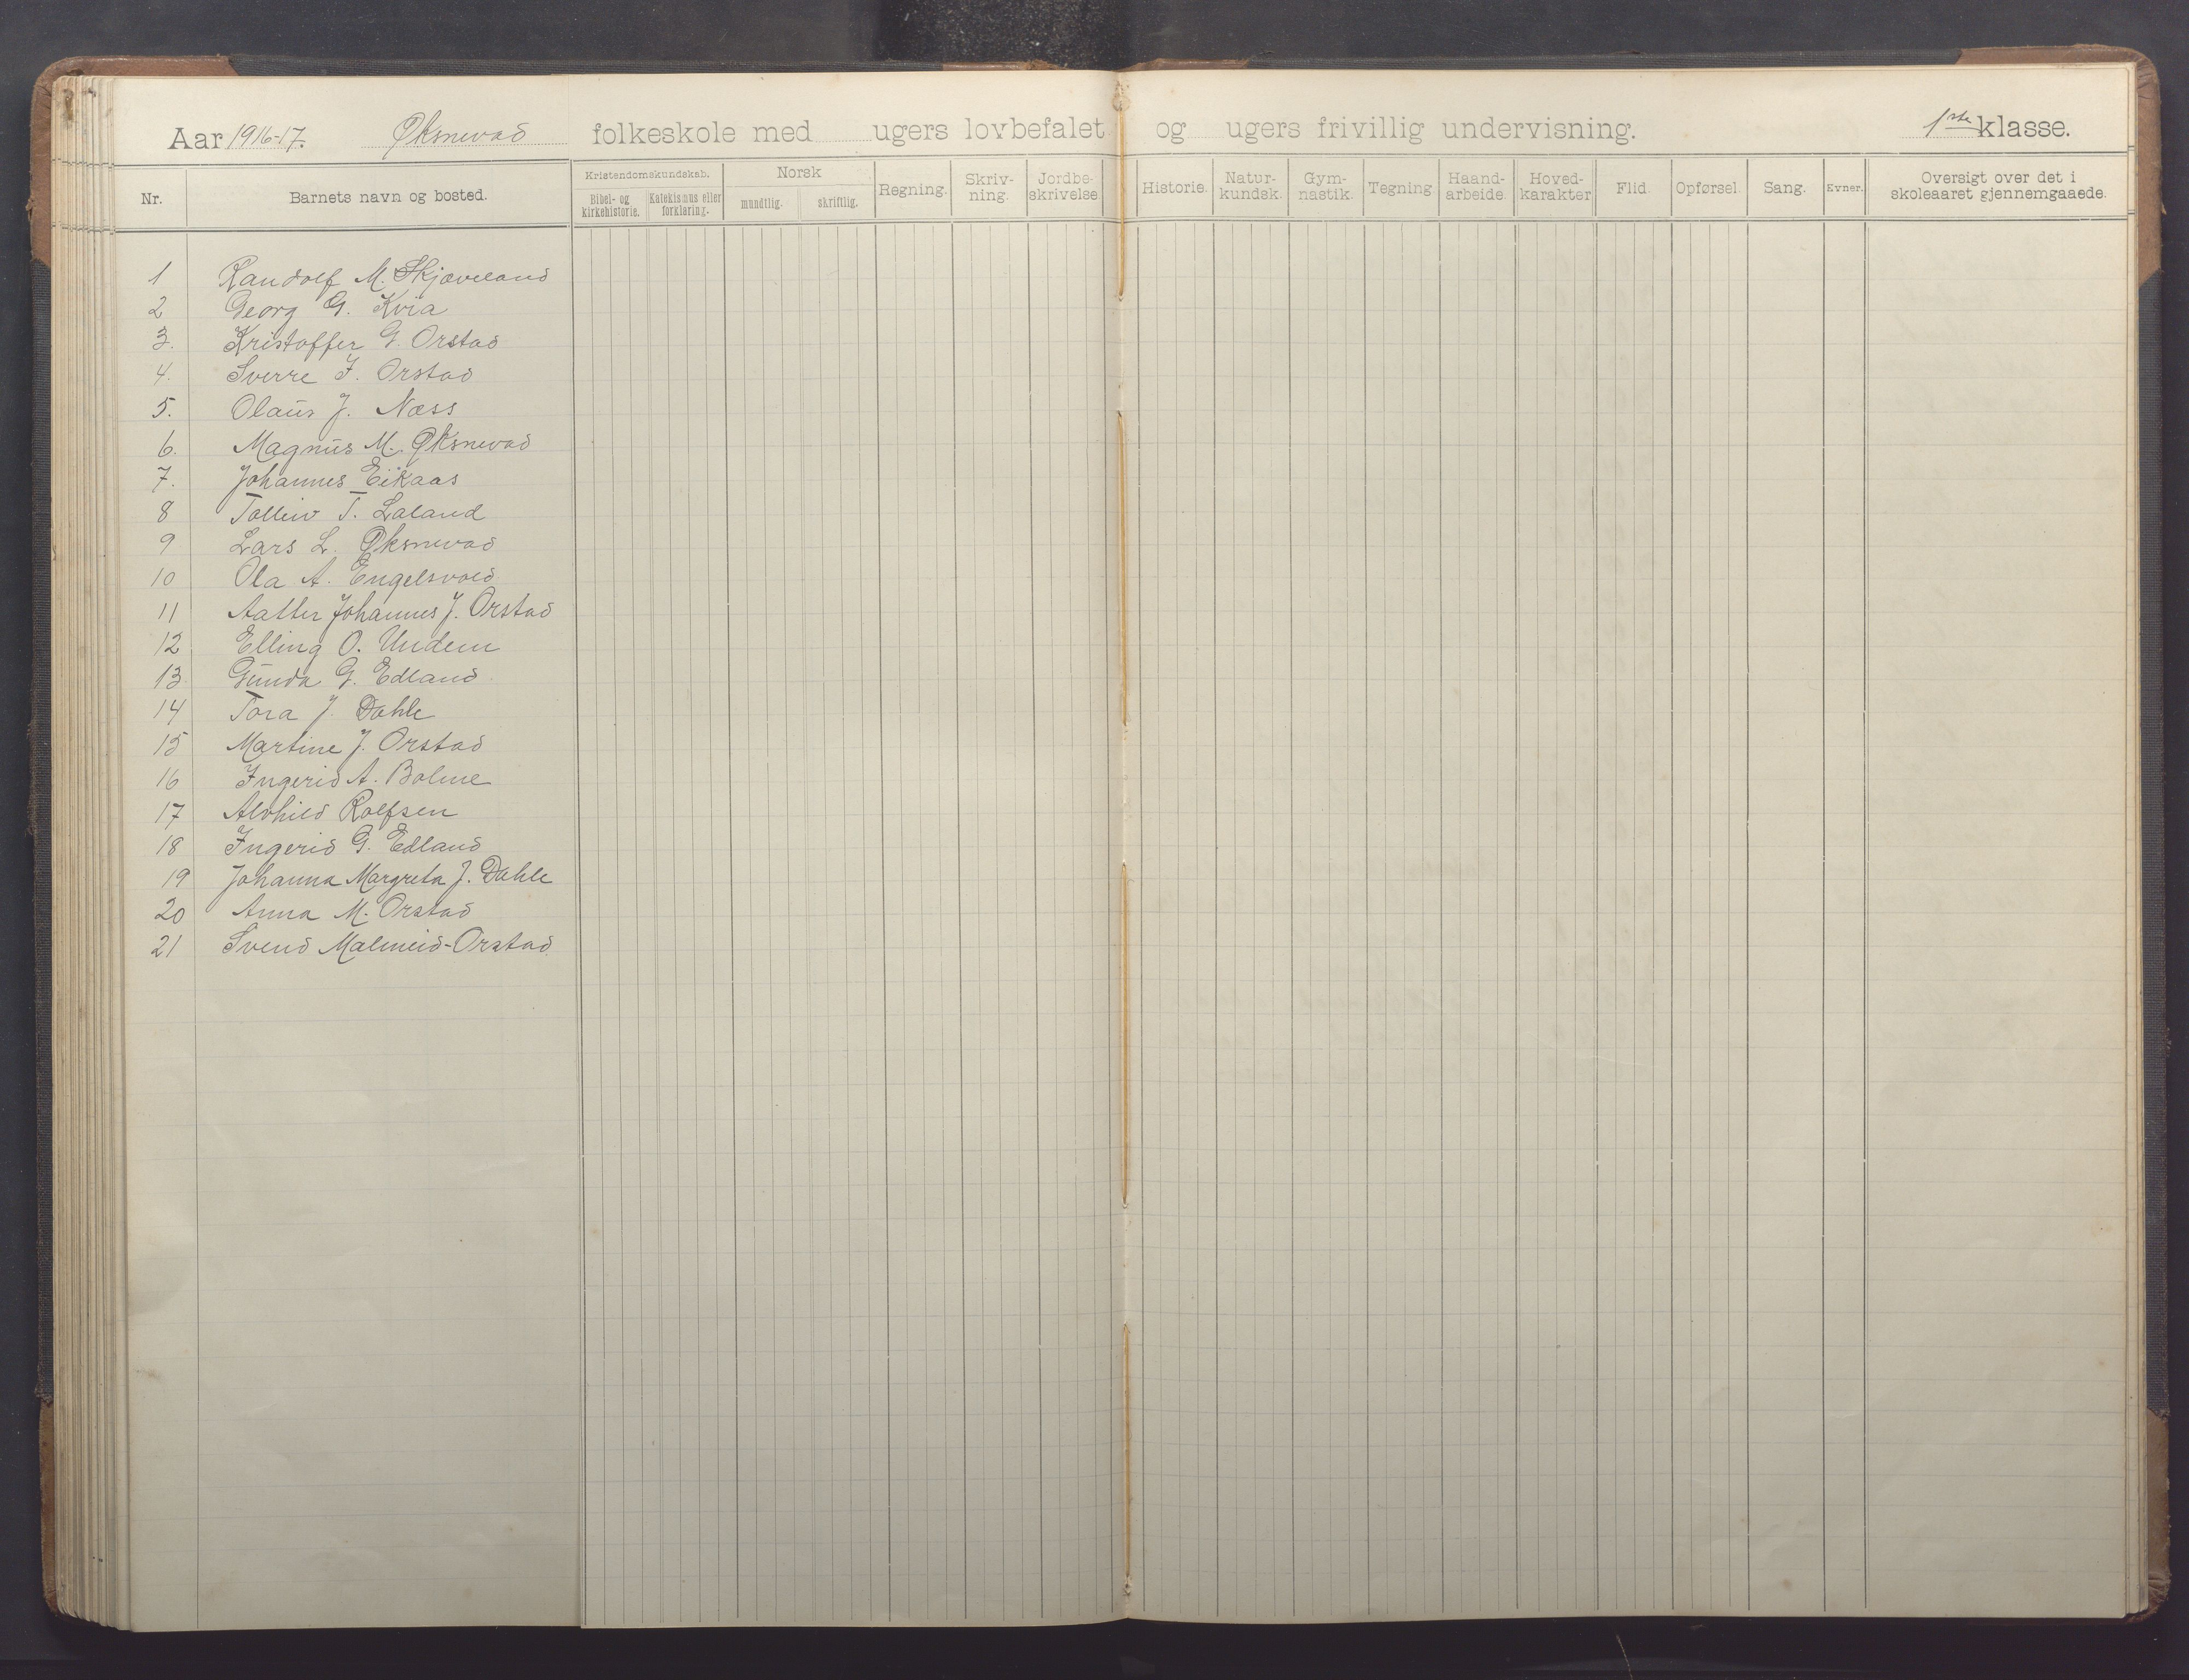 Aar 1916-17. Øksnevad folkeskole med ugers lovbefalet og ugers frivillig undervisning. 1ste klasse.
Nr. Barnets navn og bosted. Kristendomskundskab. Bibel- og kirkehistorie. Katekismus eller forklaring. Norsk mundtlig. skriftlig. Regning. Skriv-ning. Jordbe-skrivelse Historie. Natur-kundsk. Gym-nastik. Tegning Haand-arbeide. Hoved-karakter Flid. Opførsel. Sang. Evner. Oversigt over det i skoleaaret gjennemgaaede.
1 Randolf M. Skjæveland
2 Georg G. Kvia
3. Kristoffer G. Orstad
4. Sverre J. Orstad
5. Olaus J. Næss
6. Magnus M. Øksnevad
7. Johannes Eikaas
8 Tolleiv T. Laland
9 Lars L. Øksnevad
10 Ola A. Engelsvold
11 Johannes J. Orstad
12 Elling O. Undem
13 Gunda G. Edland
14 Tora J. Dahle
15 Martine J. Orstad
16 Ingerid A. Bolme
17 Alvhild Rolfsen
18 Ingerid G. Edland
19 Johanna Margreta J. Dahle
20 Anna M. Orstad
21 Svend Malmeid-Orstad